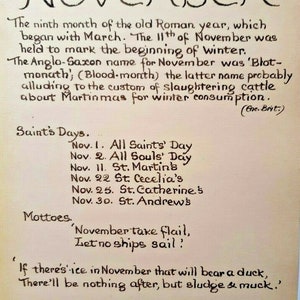 NOVEMBER
The ninth month of the old Roman year, which
began with March. The 11th of November was
held to mark the beginning of winter.
The Anglo-Saxon name for November was 'Blot-
monath', (Blood-month) the latter name probably
alluding to the custom of slaughtering cattle
about Martinmas for winter consumption.
(En. Brit.)
Saint's Days.
Nov. 1. All Saints' Day
Nov. 2. All Souls' Day
Nov. 11 St. Martin's
Nov. 22 St. Cecelia's
Nov. 25. St. Catherine's
Nov. 30. St. Andrew's
Mottoes.
'November take flail,
Let no ships sail!'
'If there's ice in November that will bear a duck,
There'll be nothing after, but sludge & muck.'